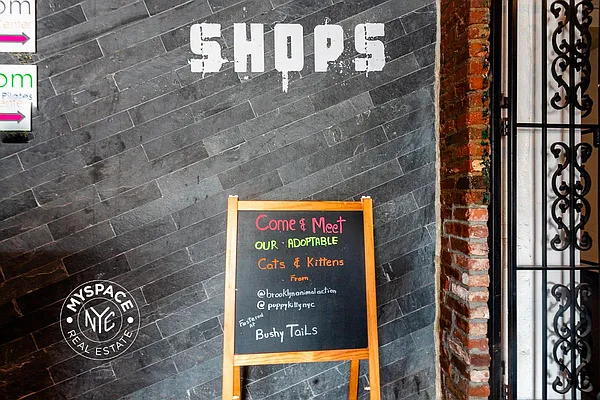 om
Center
om
Pilates
Center
SHOPS
Come & Meet
OUR · ADOPTABLE
Cats & Kittens
From
@brooklynanimalaction
@ puppykittynyc
Fostered at
Bushy TaiLs
MYSPACE
NYC
REAL ESTATE